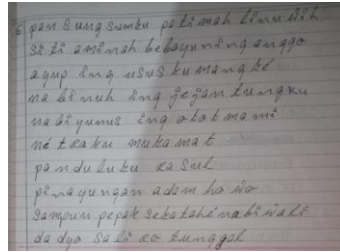 6 pan sungsumku patimah linuwih
siti aminah bebayuning anggo
ayup ing ususku mangké
nabi nuh ing jejantungku
nabi yunus ing otot mami
nétraku mukamat
panduluku rasul
pinayungan adam hawa
sampun pepak sekatahé nabi wali
dadyo saliro tunggal